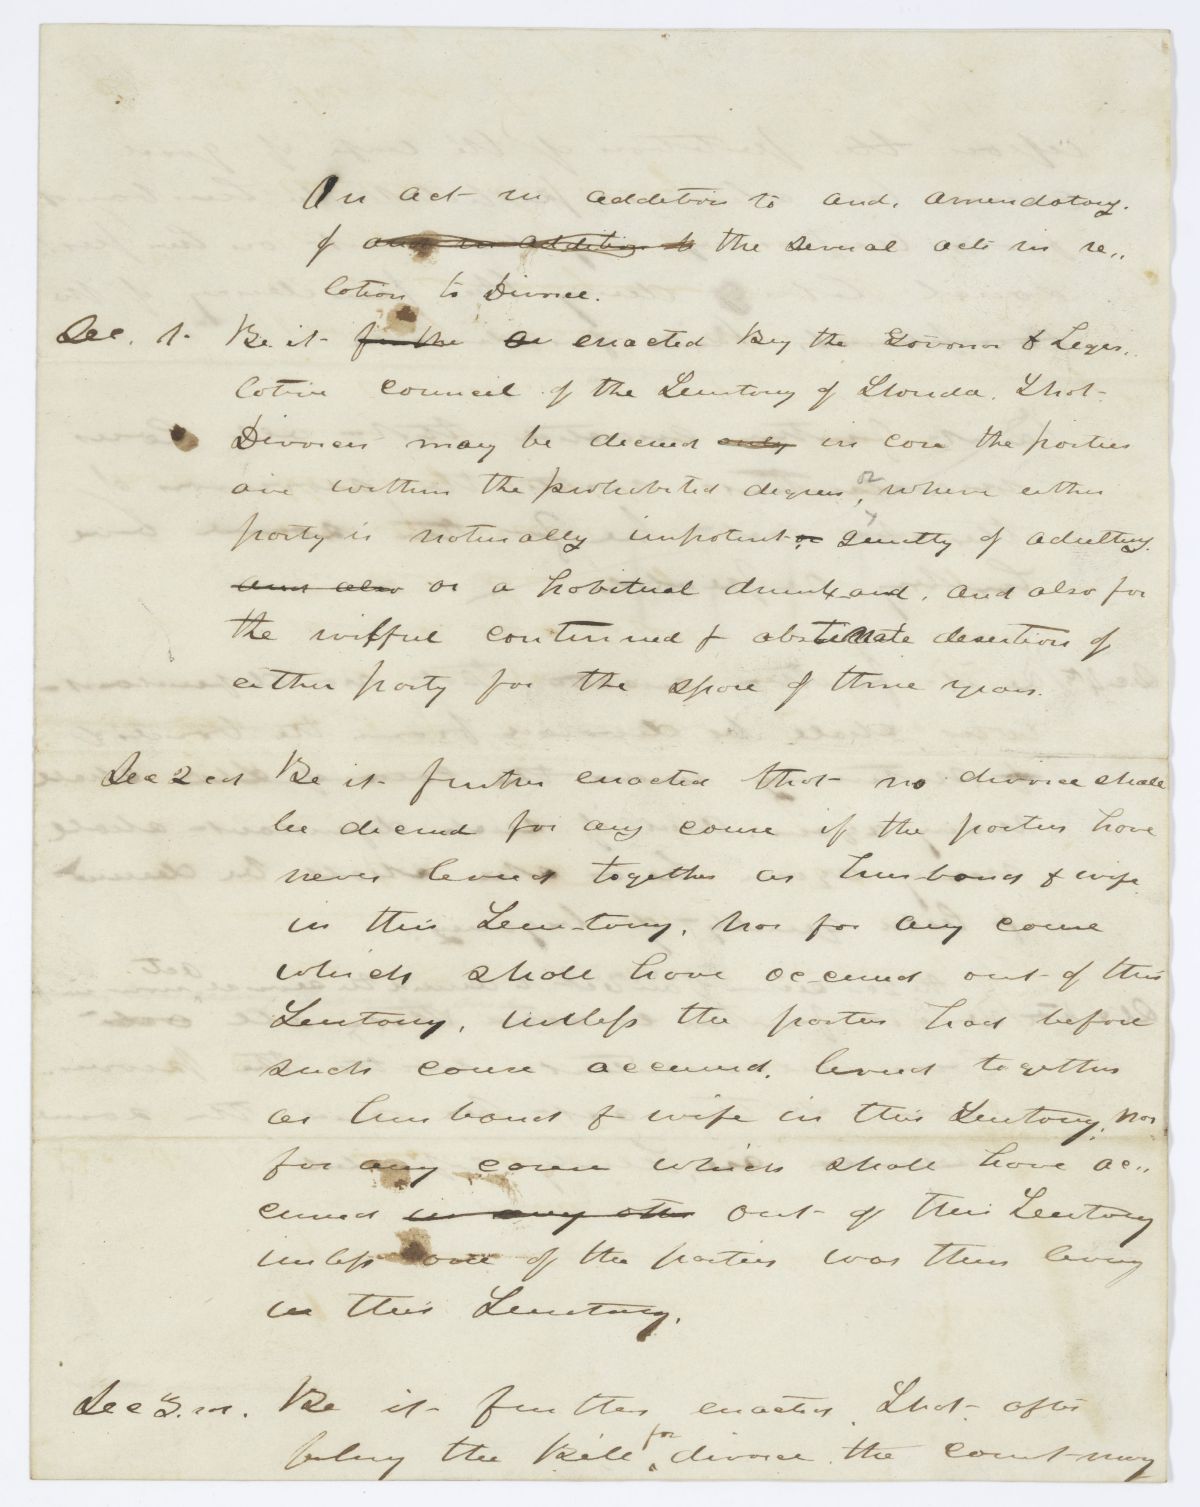 An act in addition to and, amendatory.
of and in addition to the several acts in re,,
lation to Divorce.
Sec. 1. Be it further enacted By the Governor & Legis,,
lative council of the Territory of Florida. That
Divorces may be decreed only in case the parties
are within the prohibited degrees, or where either
party is naturally impotent or guilty of adultery.
and also or a habitual drunkard, and also for
the wilful continued & obstinate desertion of
either party for the space of three years.
Sec 2cd Be it further enacted that no divorce shall
be decreed for any cause if the parties have
never lived together as husband & wife
in this Territory, Nor for any cause
which shall have occurred out of this
Territory, unless the parties had before
such cause occurred, lived together
as husband & wife in this Territory, Nor
for any cause which shall have oc,,
curred in any other out of this Territory
unless one of the parties was then living
in this Territory.
Sec 3.rd. Be it further enacted. That after
filing the Bill for divorce the court may